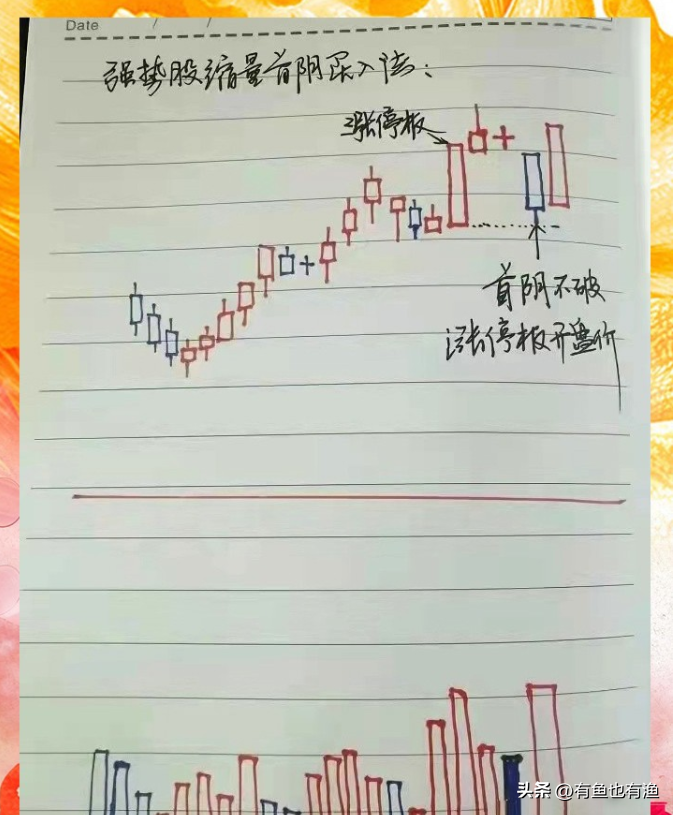 Date / /
强势股缩量首阴买入法：
涨停板
首阴不破
涨停板开盘价
头条 @有鱼也有渔